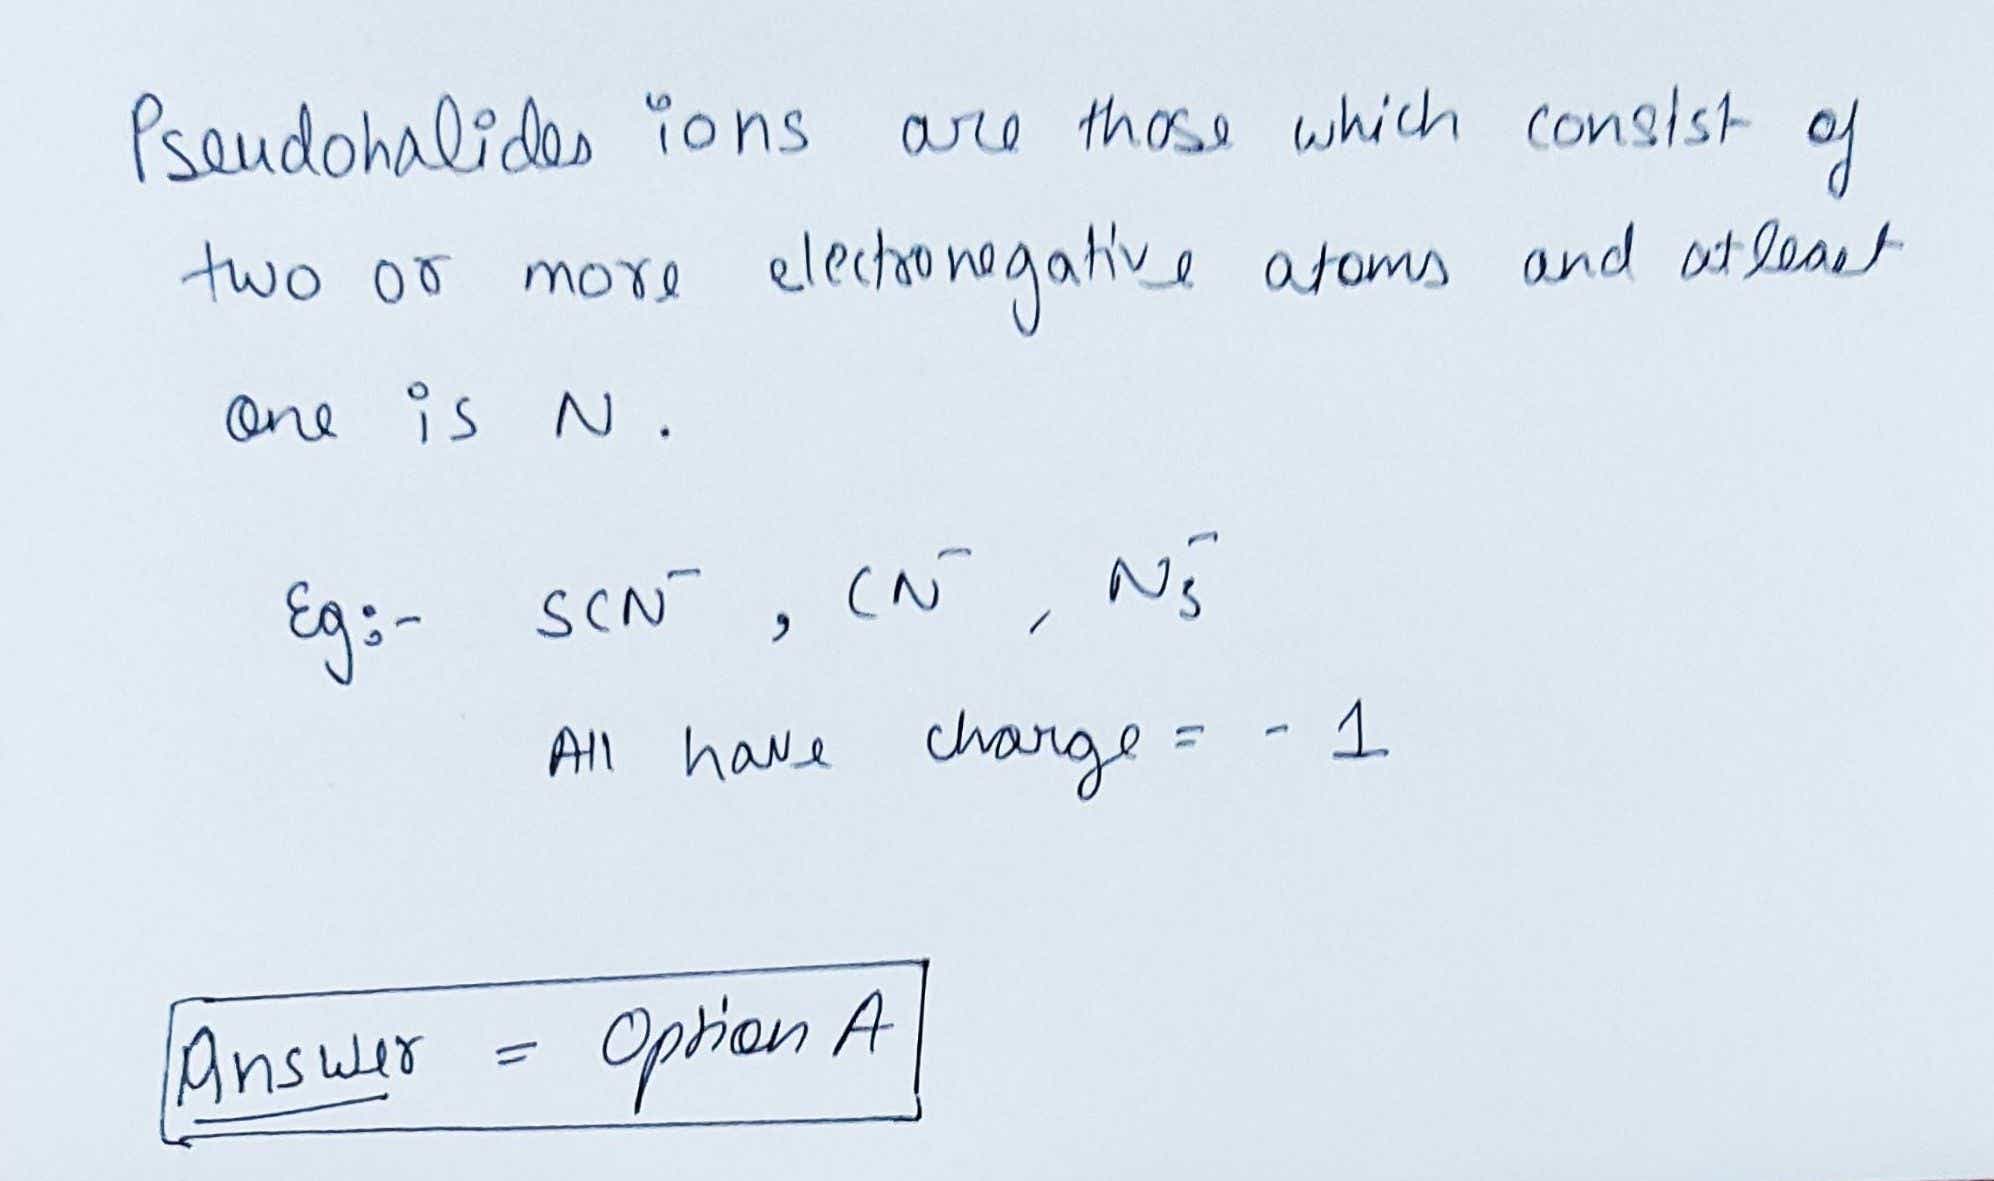 Pseudohalides ions are those which consist of
two or more electronegative atoms and atleast
one is N.
Eg:- SCN⁻, CN⁻, N₃⁻
All have charge = -1
Answer = Option A